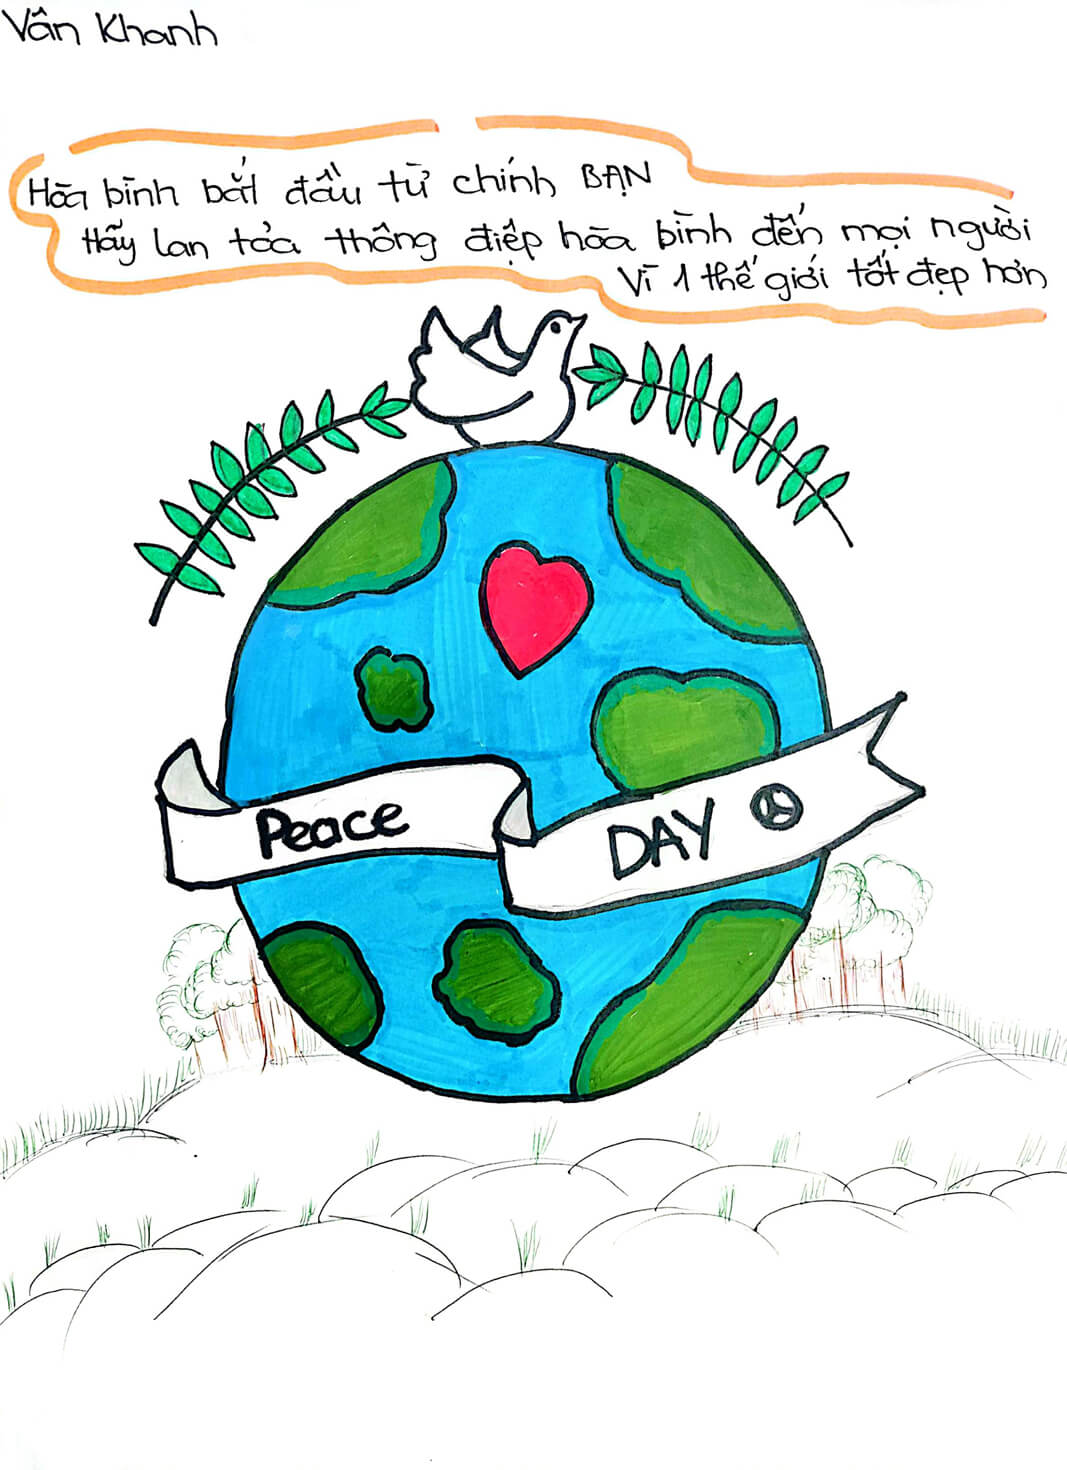 Vân Khanh
Hòa bình bắt đầu từ chính BẠN
Hãy lan tỏa thông điệp hòa bình đến mọi người
Vì 1 thế giới tốt đẹp hơn
Peace
DAY